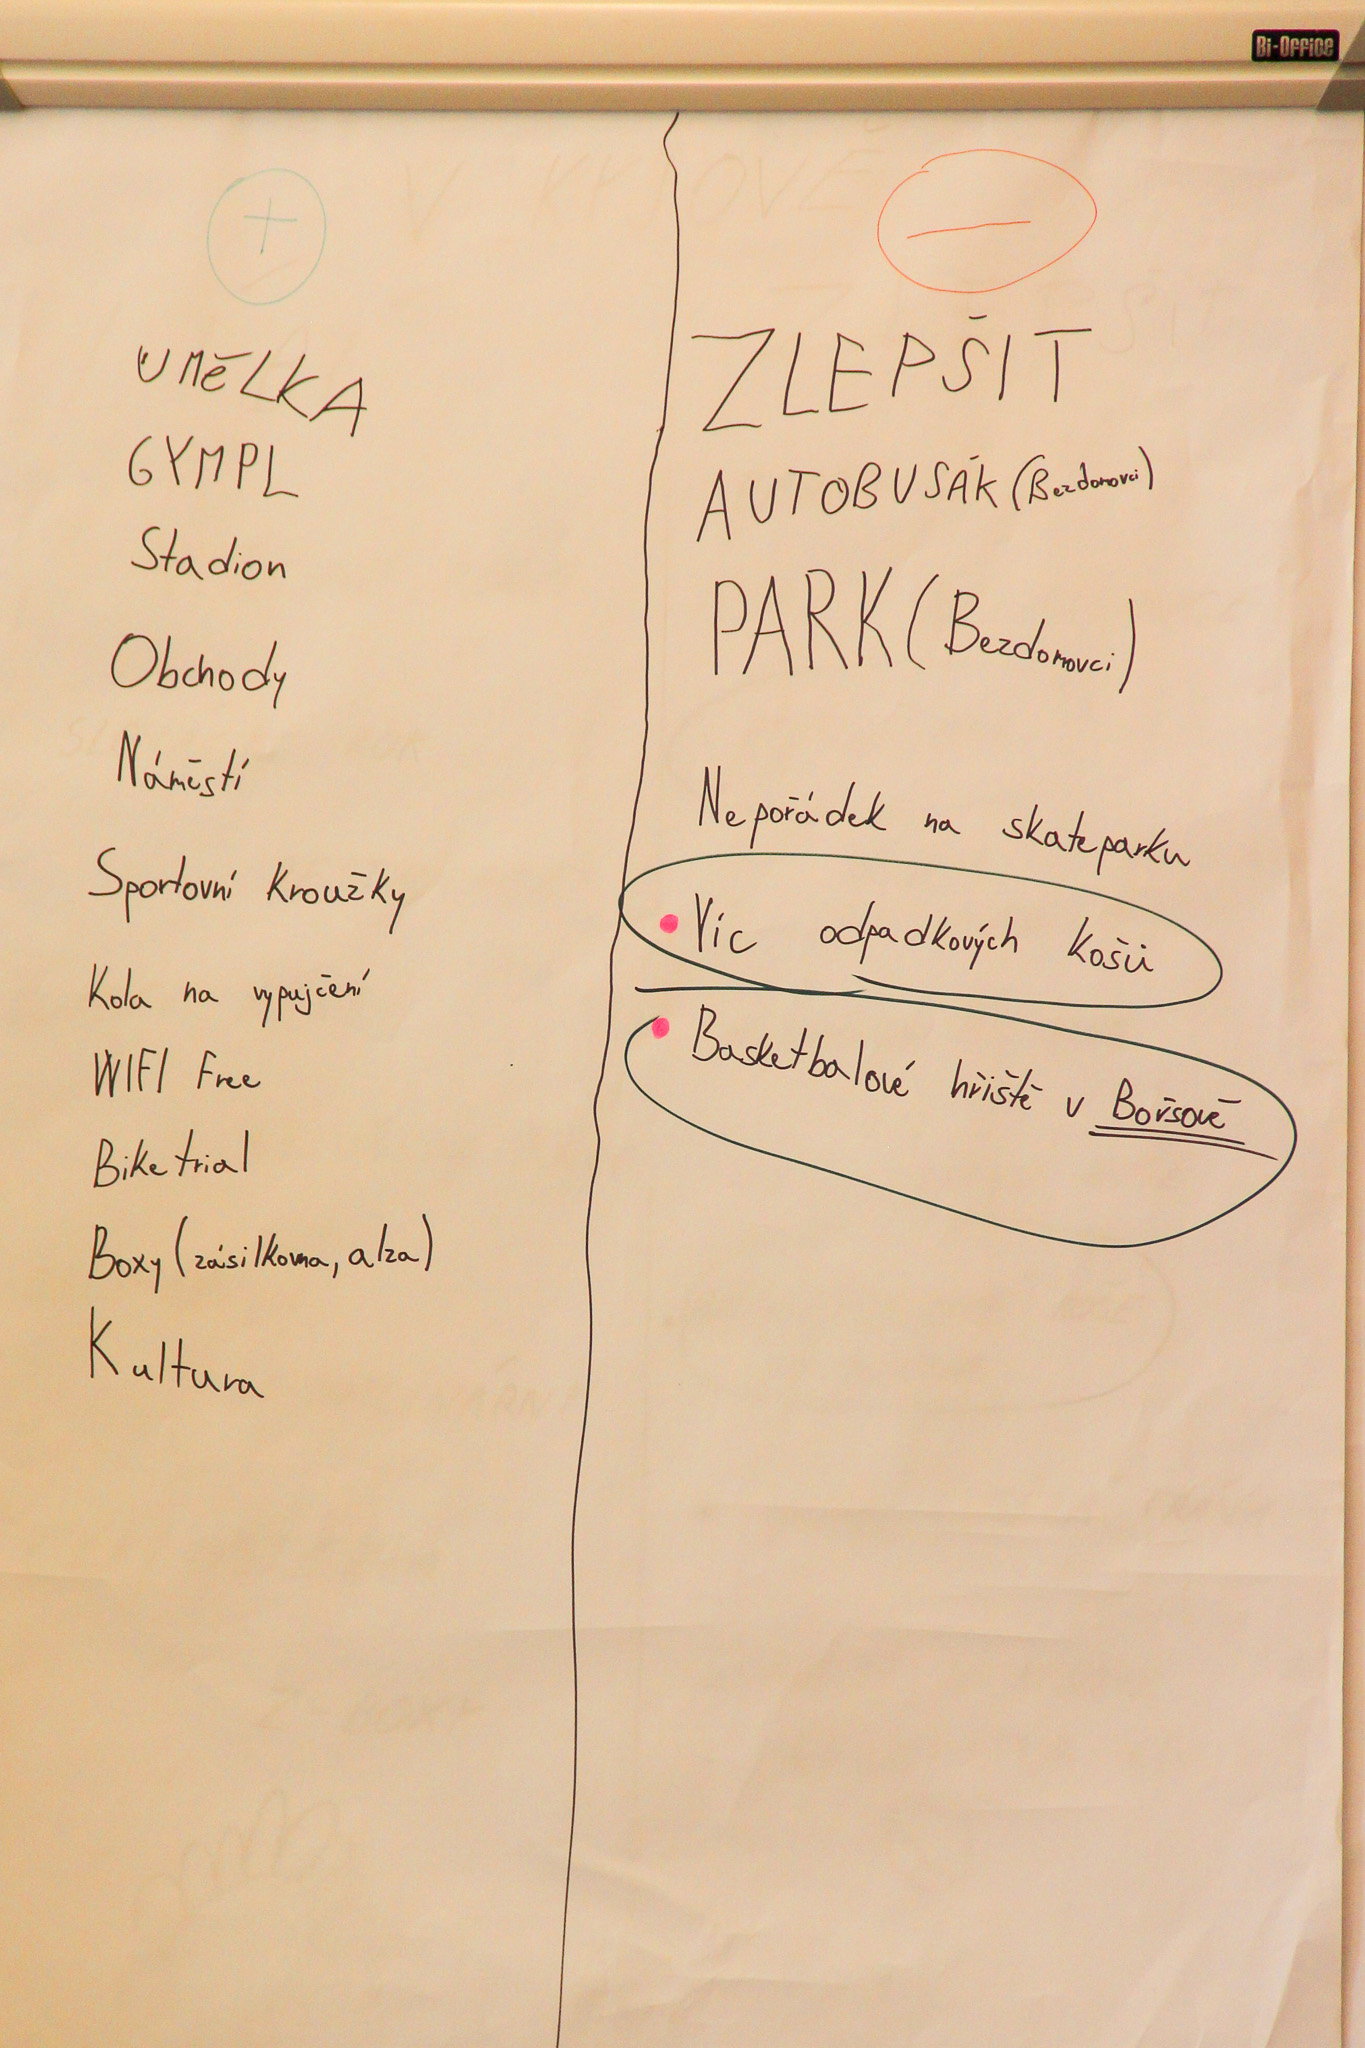 Bi-Office
+
UMĚLKA
GYMPL
Stadion
Obchody
Náměstí
Sportovní kroužky
Kola na vypujčení
WIFI Free
Biketrial
Boxy (zásilkovna, alza)
Kultura
−
ZLEPŠIT
AUTOBUSÁK (Bezdomovci)
PARK (Bezdomovci)
Nepořádek na skateparku
• Víc odpadkových košů
• Basketbalové hřiště v Boršově